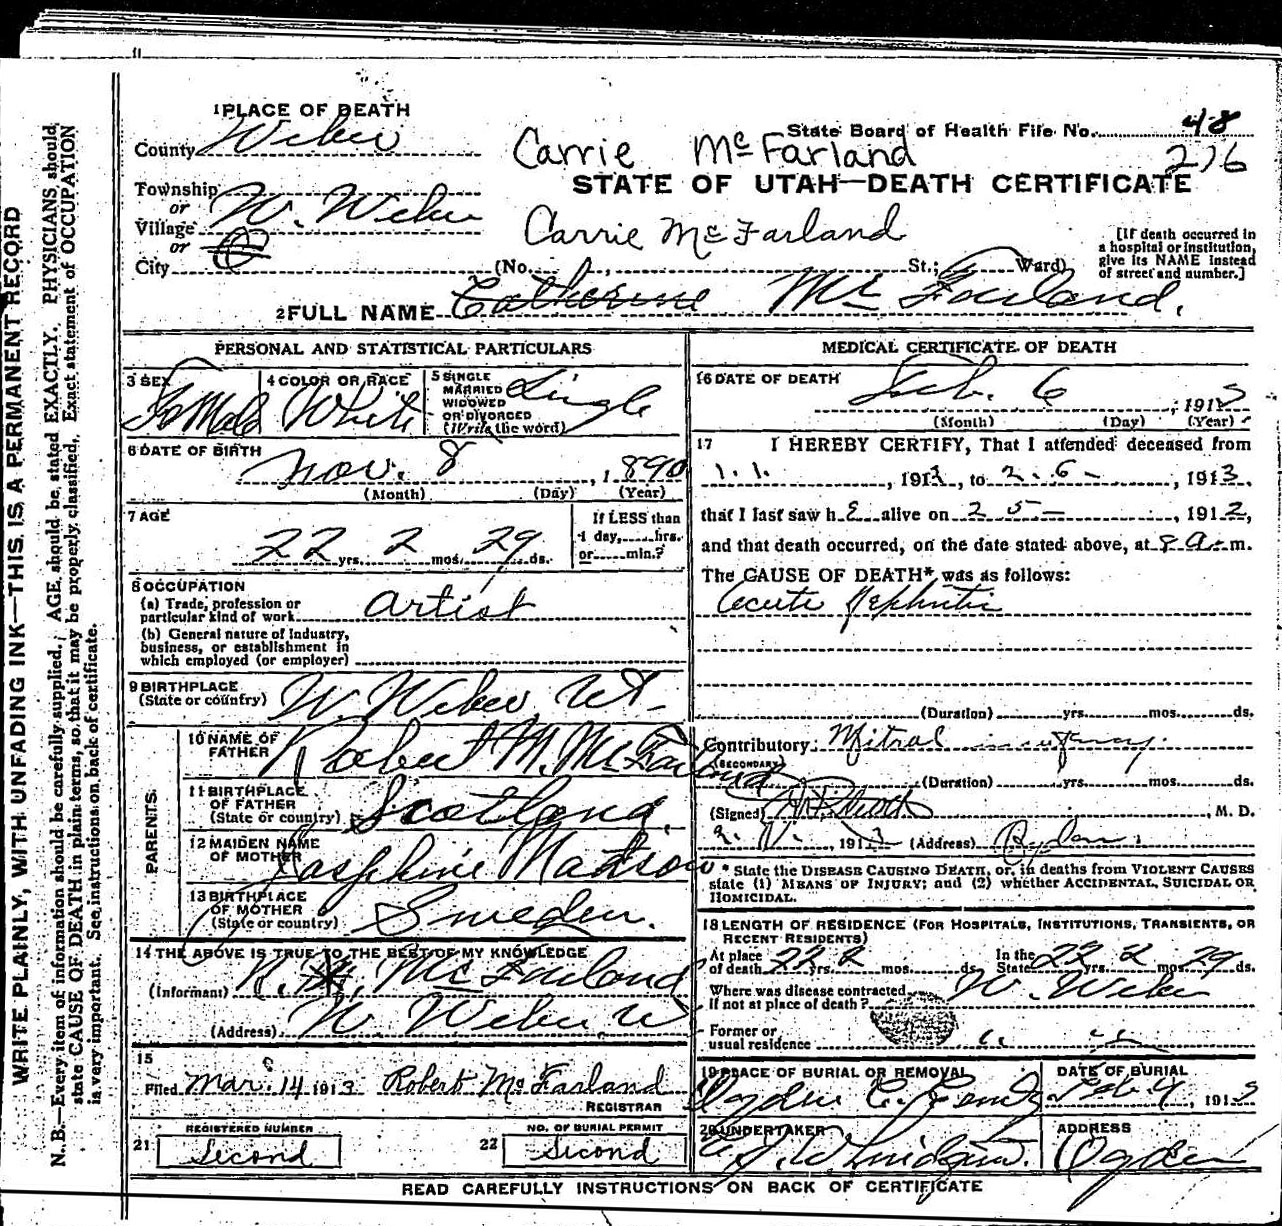 1 PLACE OF DEATH
State Board of Health File No. 48
County Weber
Carrie McFarland
216
Township
or
Village W. Weber
or
City
STATE OF UTAH—DEATH CERTIFICATE
Carrie McFarland
[If death occurred in
a hospital or institution,
give its NAME instead
of street and number.]
(No. St.; Ward)
2 FULL NAME Catherine McFarland.
PERSONAL AND STATISTICAL PARTICULARS
3 SEX
Female
4 COLOR OR RACE
White
5 SINGLE
MARRIED
WIDOWED
OR DIVORCED
(Write the word)
Single
6 DATE OF BIRTH
Nov. 8, 1890
(Month) (Day) (Year)
7 AGE
22 yrs. 2 mos. 29 ds.
If LESS than
1 day, hrs.
or min.?
8 OCCUPATION
(a) Trade, profession or
particular kind of work artist
(b) General nature of industry,
business, or establishment in
which employed (or employer)
9 BIRTHPLACE
(State or country) W. Weber Ut.
PARENTS
10 NAME OF
FATHER Robert M. McFarland
11 BIRTHPLACE
OF FATHER
(State or country) Scotland.
12 MAIDEN NAME
OF MOTHER Josephine Madson
13 BIRTHPLACE
OF MOTHER
(State or country) Sweden.
14 THE ABOVE IS TRUE TO THE BEST OF MY KNOWLEDGE
(Informant) R. M. McFarland
(Address) W Weber Ut
15
Filed Mar. 14 1913 Robert McFarland
REGISTRAR
REGISTERED NUMBER
21 Second
NO. OF BURIAL PERMIT
22 Second
MEDICAL CERTIFICATE OF DEATH
16 DATE OF DEATH
Feb. 6, 1913
(Month) (Day) (Year)
17 I HEREBY CERTIFY, That I attended deceased from
1. 1. , 1913, to 2. 6 - , 1913,
that I last saw h E alive on 2 5 - , 1912,
and that death occurred, on the date stated above, at 8 a. m.
The CAUSE OF DEATH* was as follows:
acute Nephritis
(Duration) yrs. mos. ds.
Contributory Mitral
(SECONDARY)
(Duration) yrs. mos. ds.
(Signed) , M. D.
, 1913 (Address) Ogden
* State the DISEASE CAUSING DEATH, or, in deaths from VIOLENT CAUSES
state (1) MEANS OF INJURY; and (2) whether ACCIDENTAL, SUICIDAL OR
HOMICIDAL.
18 LENGTH OF RESIDENCE (FOR HOSPITALS, INSTITUTIONS, TRANSIENTS, OR
RECENT RESIDENTS)
At place
of death 22 yrs. 2 mos. ds. In the
State 22 yrs. 2 mos. 29 ds.
Where was disease contracted
If not at place of death? W. Weber
Former or
usual residence
19 PLACE OF BURIAL OR REMOVAL
Ogden C. Cemty
DATE OF BURIAL
Feb 9, 1913
20 UNDERTAKER
ADDRESS
Ogden
READ CAREFULLY INSTRUCTIONS ON BACK OF CERTIFICATE
WRITE PLAINLY, WITH UNFADING INK—THIS IS A PERMANENT RECORD
N. B.—Every item of information should be carefully supplied. AGE should be stated EXACTLY. PHYSICIANS should
state CAUSE OF DEATH in plain terms, so that it may be properly classified. Exact statement of OCCUPATION
is very important. See instructions on back of certificate.